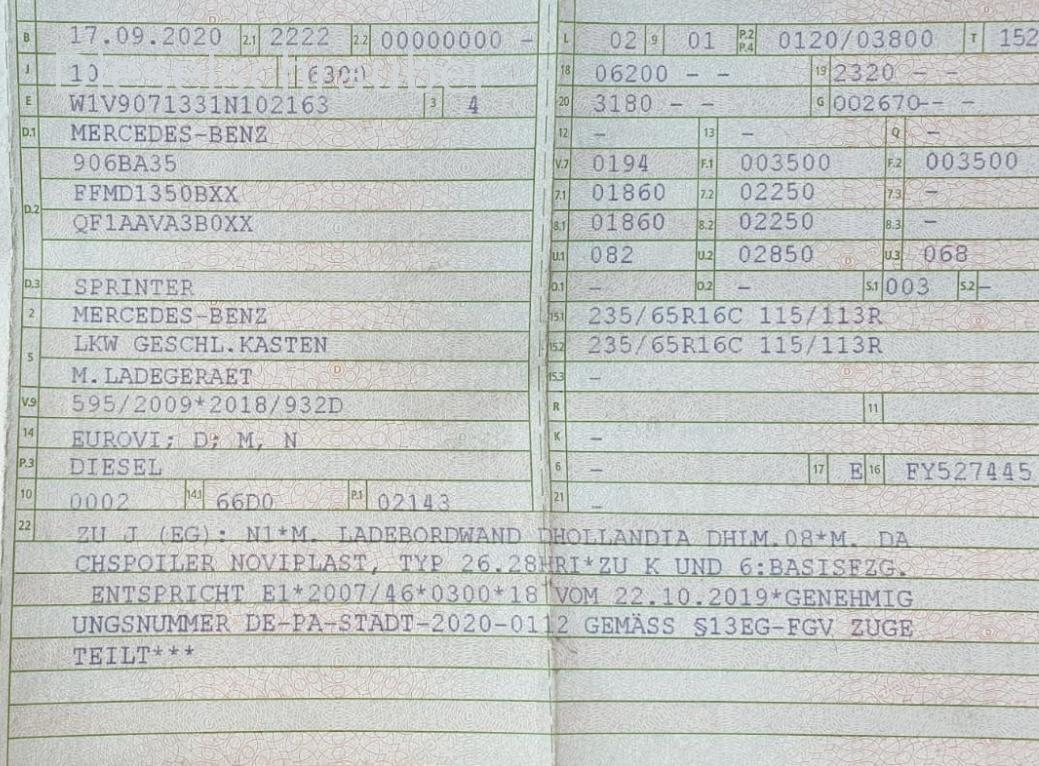 B 17.09.2020 2.1 2222 2.2 00000000 - L 02 9 01 P.2 P.4 0120/03800 T 152
J 10 6300 18 06200 - - 19 2320 - -
E W1V9071331N102163 3 4 20 3180 - - G 002670-- -
D.1 MERCEDES-BENZ 12 - 13 - Q -
906BA35 V.7 0194 F.1 003500 F.2 003500
D.2 FFMD1350BXX 7.1 01860 7.2 02250 7.3 -
QF1AAVA3B0XX 8.1 01860 8.2 02250 8.3 -
U.1 082 U.2 02850 U.3 068
D.3 SPRINTER O.1 - O.2 - S.1 003 S.2 -
2 MERCEDES-BENZ 15.1 235/65R16C 115/113R
5 LKW GESCHL.KASTEN 15.2 235/65R16C 115/113R
M.LADEGERAET 15.3 -
V.9 595/2009*2018/932D R 11
14 EUROVI; D; M, N K -
P.3 DIESEL 6 - 17 E 16 FY527445
10 0002 14.1 66D0 P.1 02143 21 -
22 ZU J (EG): N1*M. LADEBORDWAND DHOLLANDIA DHLM.08*M. DA
CHSPOILER NOVIPLAST, TYP 26.28HRI*ZU K UND 6:BASISFZG.
ENTSPRICHT E1*2007/46*0300*18 VOM 22.10.2019*GENEHMIG
UNGSNUMMER DE-PA-STADT-2020-0112 GEMÄSS §13EG-FGV ZUGE
TEILT***